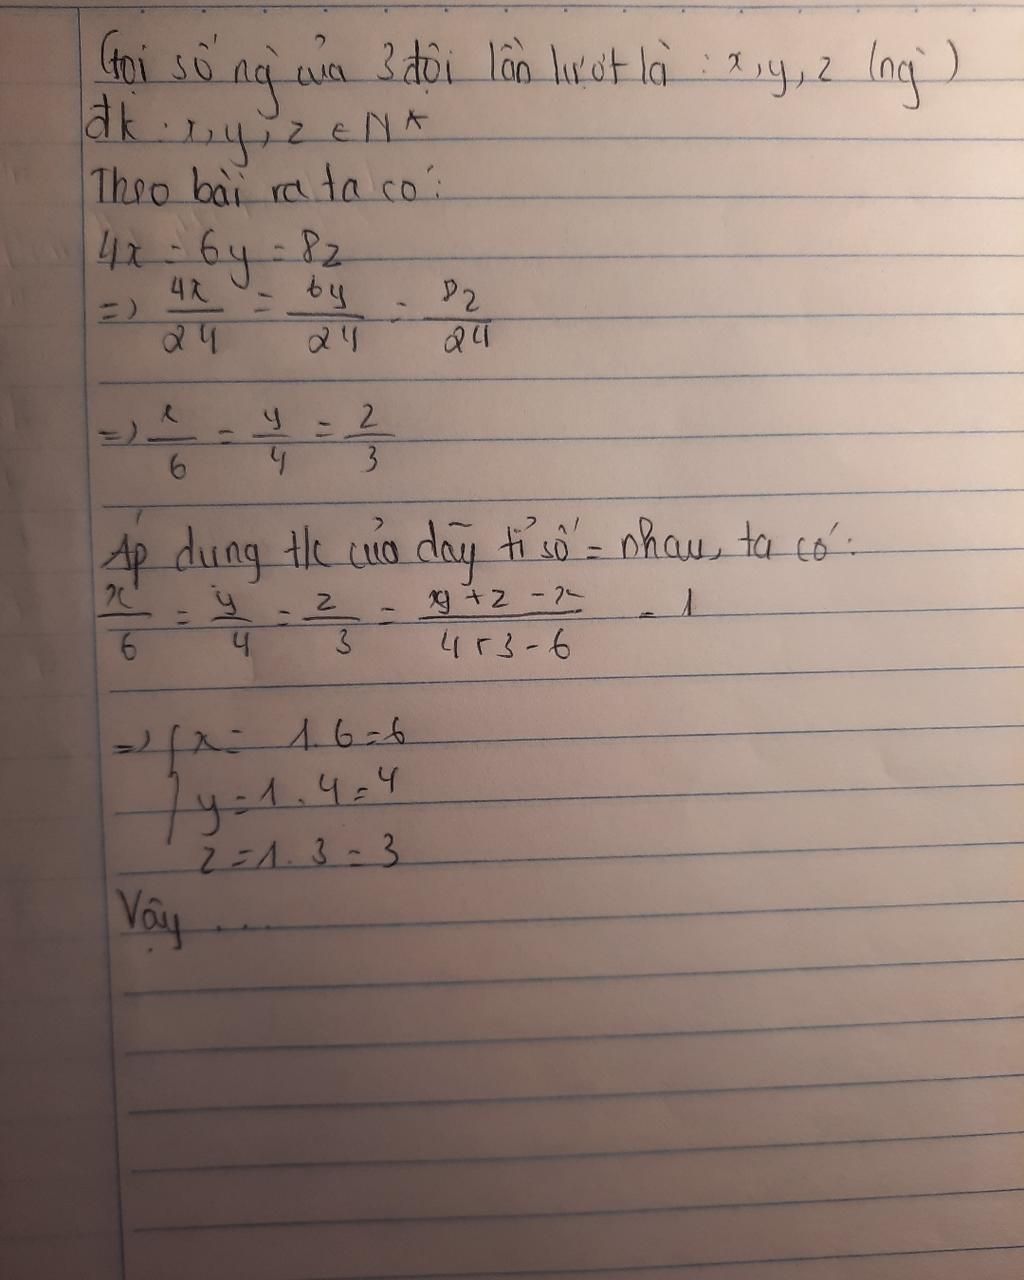 Gọi số ng` của 3 đội lần lượt là : x, y, z (ng`)
đk : x, y, z ∈ N*
Theo bài ra ta có:
4x = 6y = 8z
=> 4x/24 = 6y/24 = 8z/24
=> x/6 = y/4 = z/3
Áp dung t/c của dãy tỉ số = nhau, ta có:
x/6 = y/4 = z/3 = y+z-x/4+3-6 = 1
=> { x = 1.6=6
y=1.4=4
z=1.3=3
Vậy ....